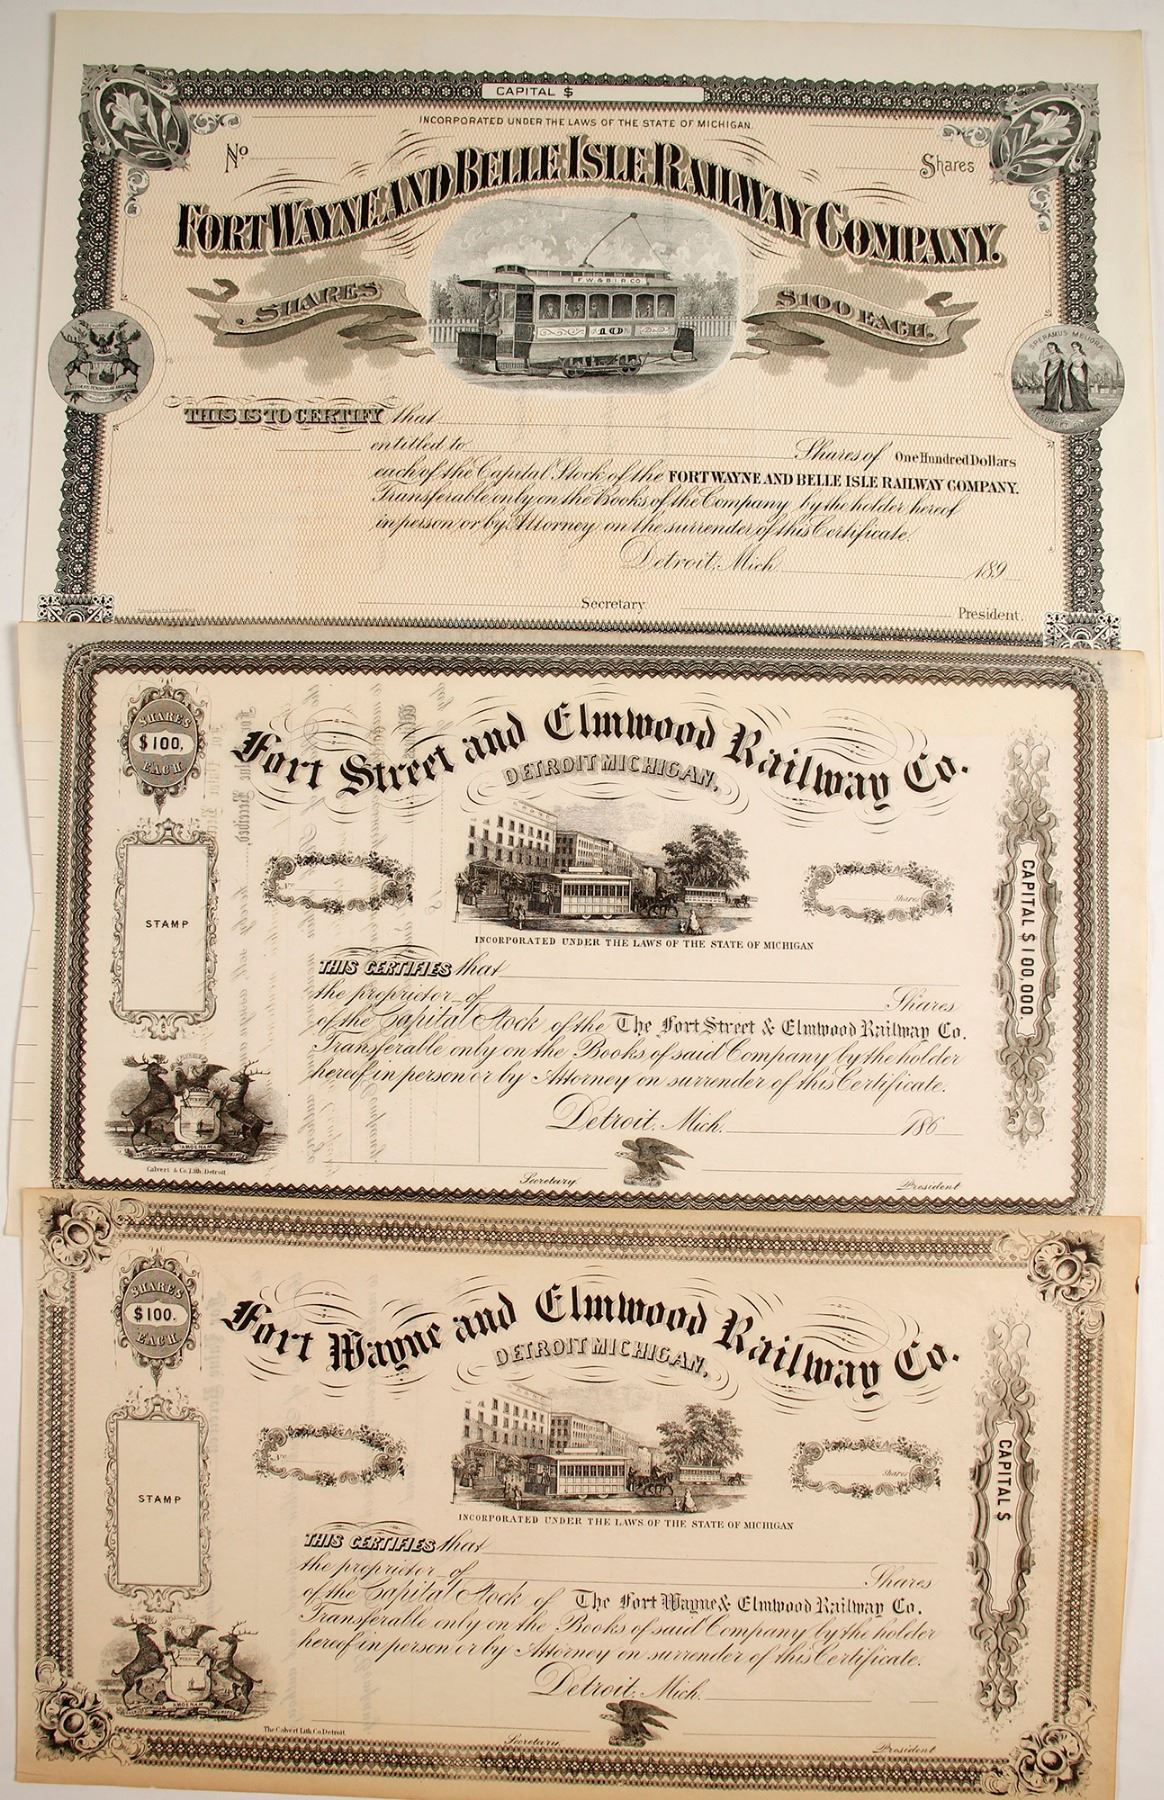 CAPITAL $
INCORPORATED UNDER THE LAWS OF THE STATE OF MICHIGAN.
No
Shares
FORT WAYNE AND BELLE ISLE RAILWAY COMPANY.
F.W. & B.I.R.CO.
10
SHARES
$100 EACH.
SPERAMUS MELIORA
THIS IS TO CERTIFY that
entitled to Shares of One Hundred Dollars
each of the Capital Stock of the FORT WAYNE AND BELLE ISLE RAILWAY COMPANY.
Transferable only on the Books of the Company by the holder hereof
in person or by Attorney on the surrender of this Certificate.
Detroit, Mich. 189
Secretary
President
SHARES
$100,
EACH
Fort Street and Elmwood Railway Co.
DETROIT MICHIGAN.
STAMP
No
Shares
CAPITAL $100,000
INCORPORATED UNDER THE LAWS OF THE STATE OF MICHIGAN
THIS CERTIFIES that
the proprietor of Shares
of the Capital Stock of the The Fort Street & Elmwood Railway Co.
Transferable only on the Books of said Company by the holder
hereof in person or by Attorney on surrender of this Certificate.
Detroit, Mich. 186
TUEBOR
Calvert & Co. Lith. Detroit
Secretary.
President
SHARES
$100.
EACH
Fort Wayne and Elmwood Railway Co.
DETROIT MICHIGAN.
STAMP
No
Shares
CAPITAL $
INCORPORATED UNDER THE LAWS OF THE STATE OF MICHIGAN
THIS CERTIFIES that
the proprietor of Shares
of the Capital Stock of The Fort Wayne & Elmwood Railway Co.
Transferable only on the Books of said Company by the holder
hereof in person or by Attorney on surrender of this Certificate.
Detroit, Mich.
The Calvert Lith. Co. Detroit
Secretary.
President